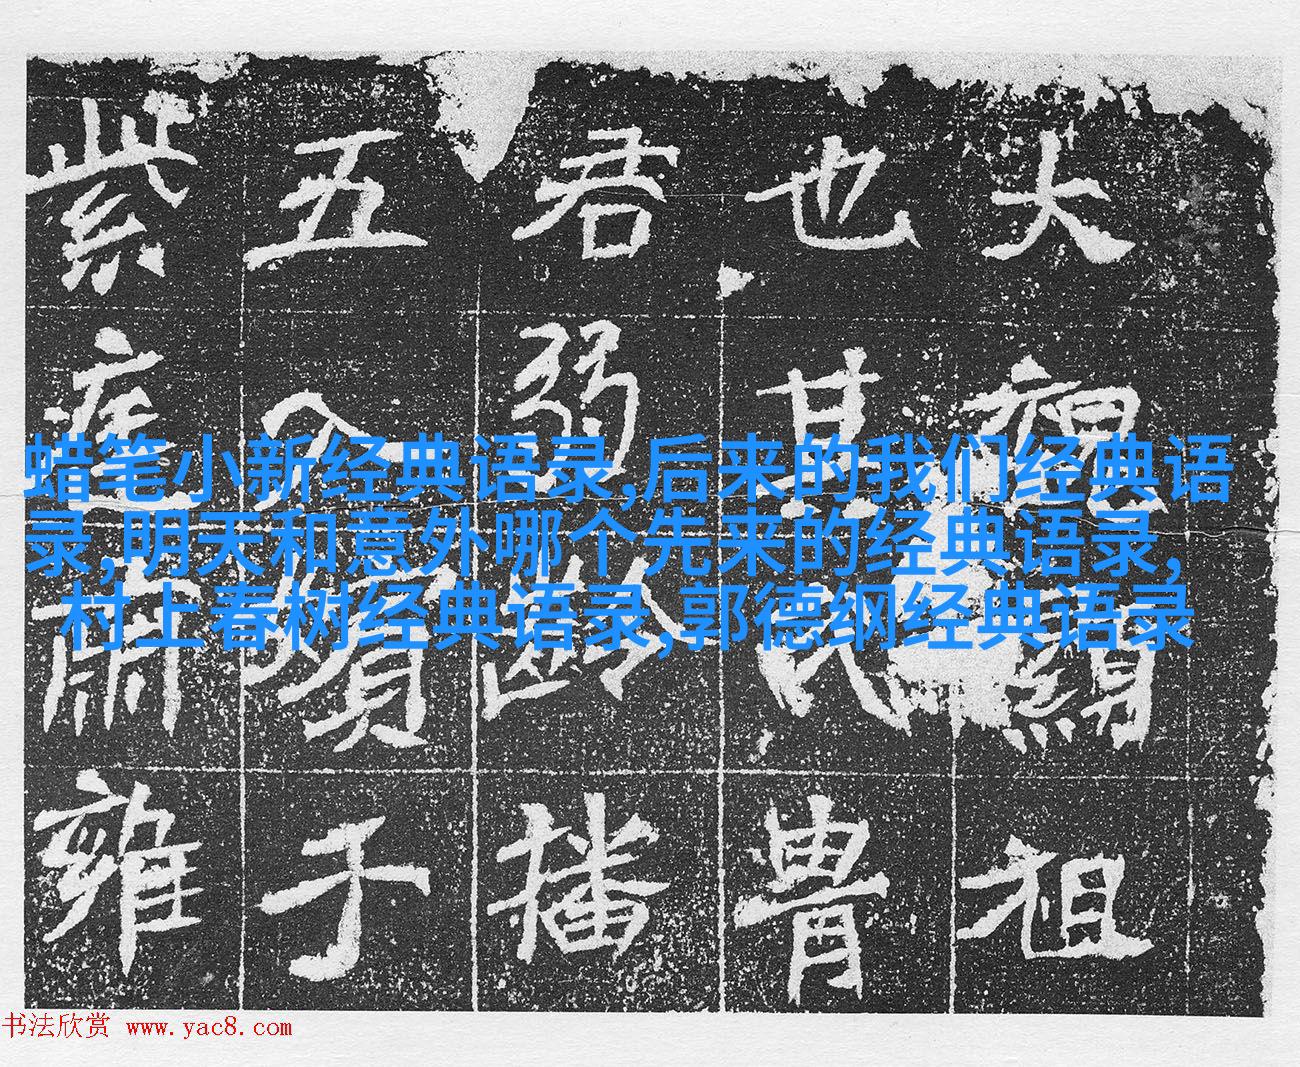 大祖
也其胄
君弱播
五于
紫庭肃雍
蜡笔小新经典语录,后来的我们经典语
录,明天和意外哪个先来的经典语录,
村上春树经典语录,郭德纲经典语录
书法欣赏 www.yac8.com